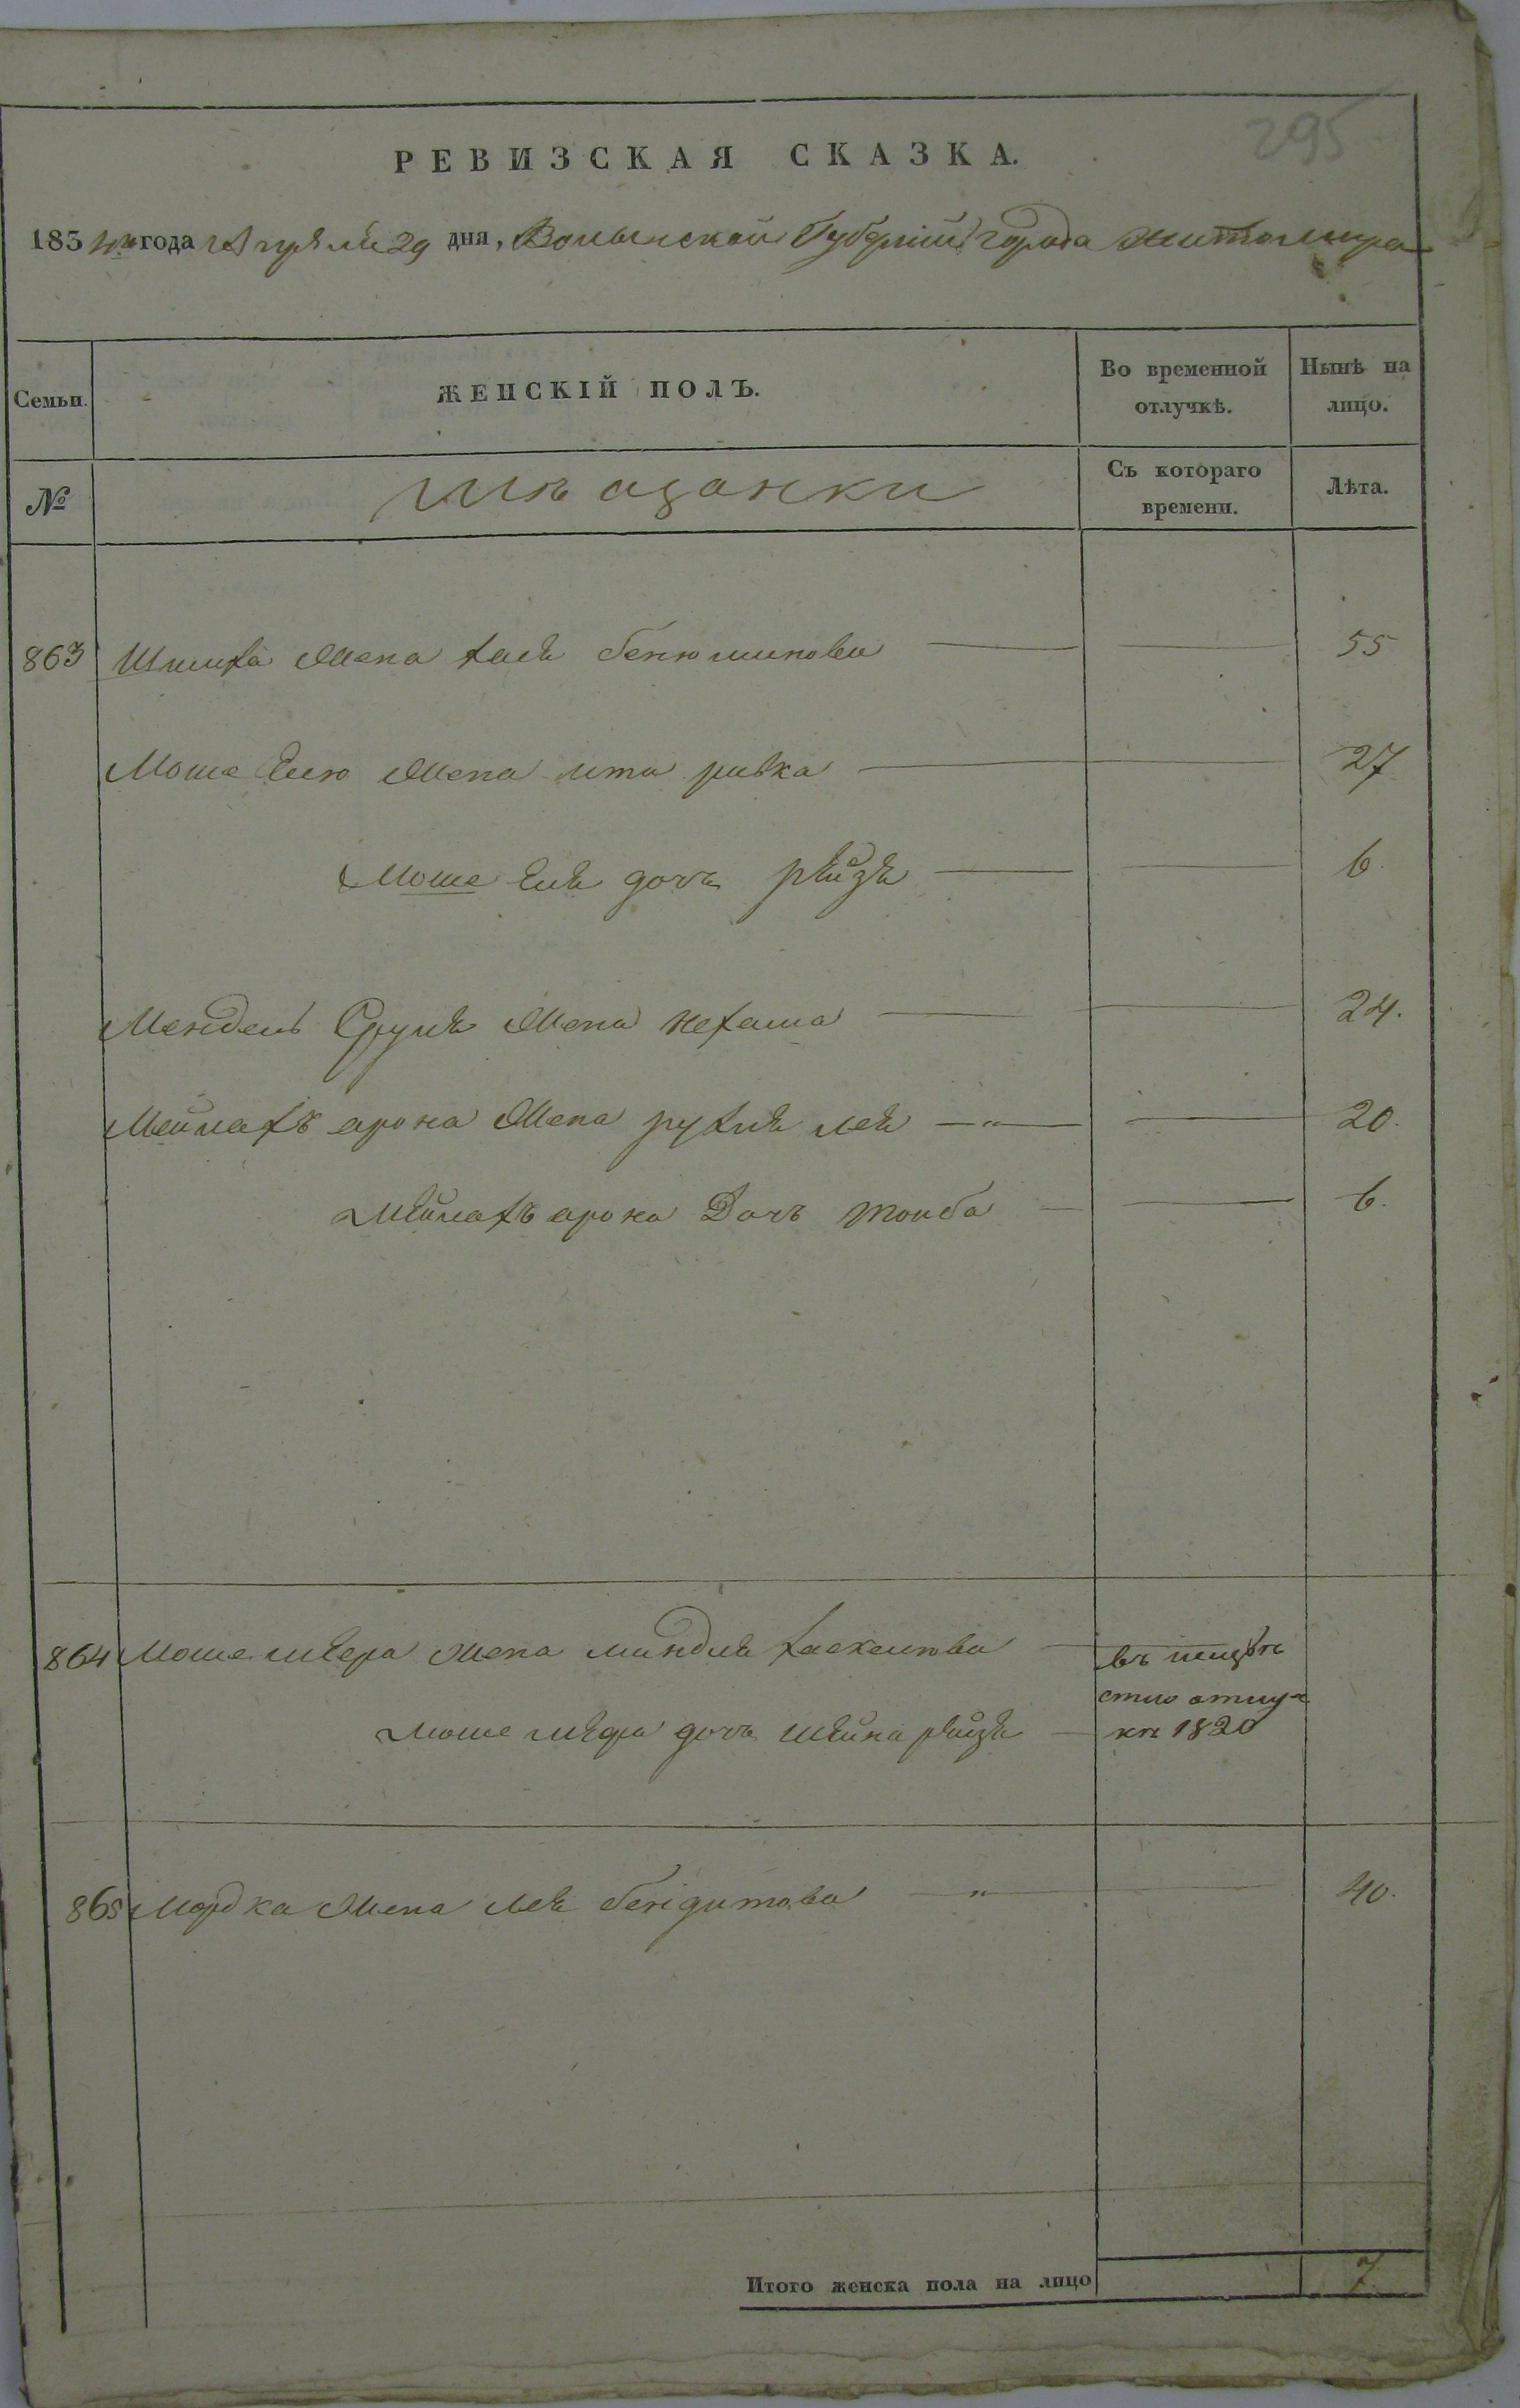 295
РЕВИЗСКАЯ СКАЗКА.
1834го года Апреля 29 дня, Волынской Губернии города Житомира
Семьи. ЖЕНСКІЙ ПОЛЪ. Во временной отлучкѣ. Нынѣ на лицо.
№ Мѣщанки Съ котораго времени. Лѣта.
863 Шлиха Жена хая бенюминова 55
Моше Елю Жена ита ривка 27
Моше Еля дочь рейзя 6
Мендель Сруля Жена нехама 24.
Меилахъ арона Жена рухля лея 20.
Мейлахъ арона Дочь тоиба 6.
864 Моше меера жена миндля хаскелева въ
Моше меера дочь шейна рейзя
кѣ 1820
865 Мордка Жена лея 40.
Итого женска пола на лицо 7